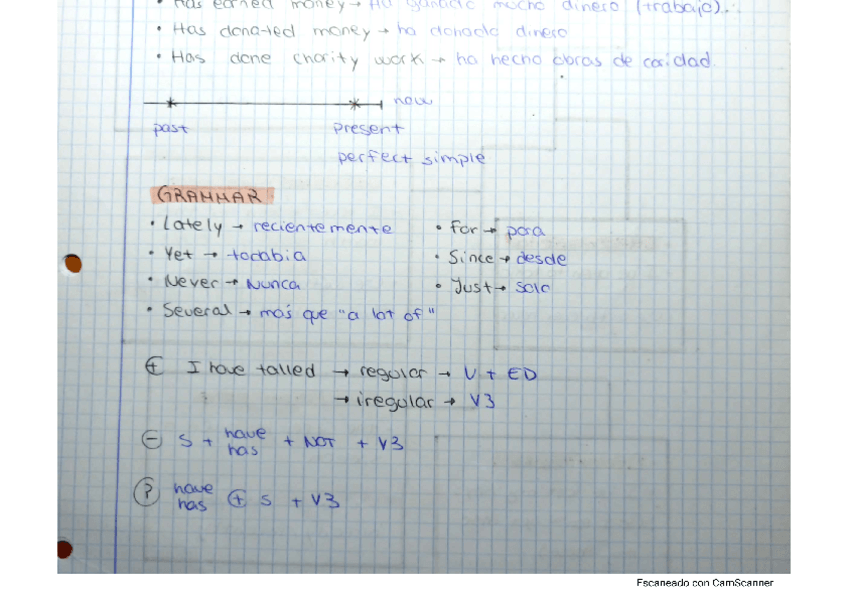 • Has earned money → Ha ganado mucho dinero (trabajo).
• Has donated money → ha donado dinero
• Has done chority work → ha hecho obras de caridad.
now
past present
perfect simple
GRAMMAR
• Lately → recientemente • For → para
• Yet → todabia • Since → desde
• Never → Nunca • Just → solo
• Several → más que "a lot of"
+ I have talled → regular → V + ED
→ iregular → V3
- S + have has + NOT + V3
? have has + S + V3
Escaneado con CamScanner